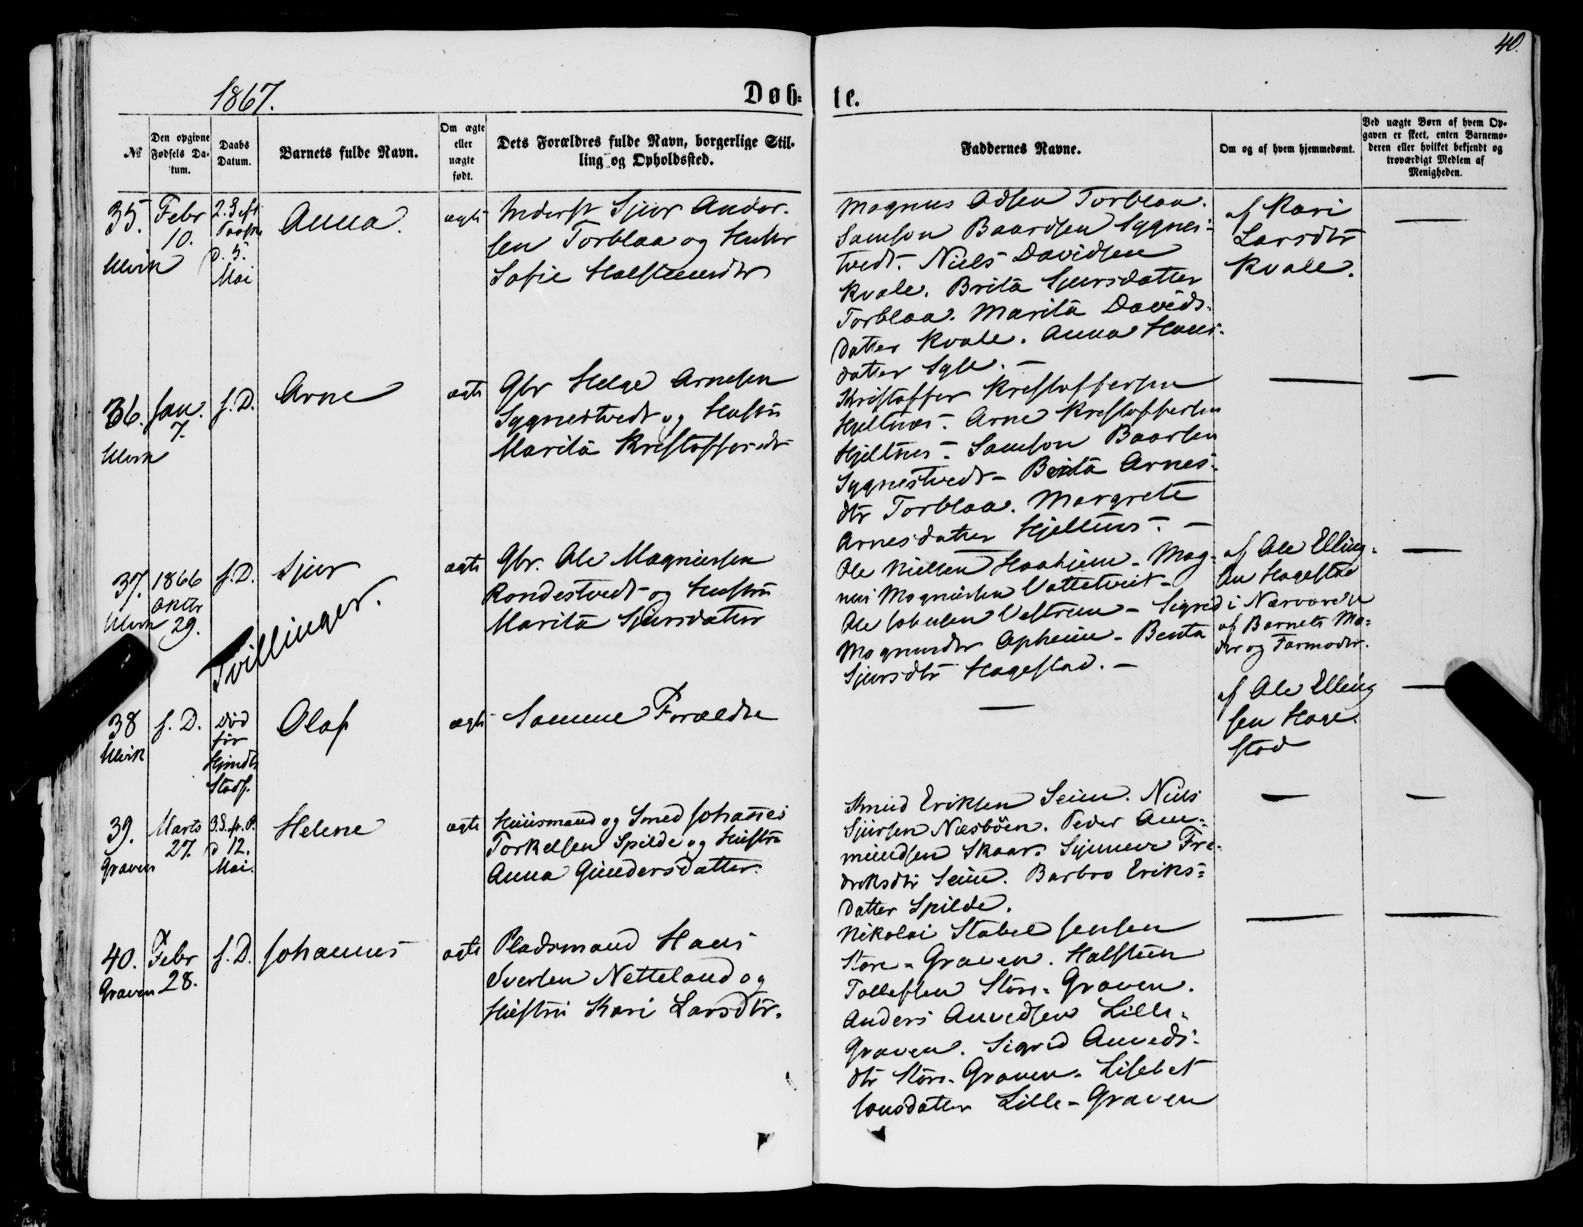 40.
1867.
Døb- te.
№ Den opgivne Fødsels Datum. Daabs Datum. Barnets fulde Navn. Om ægte eller uægte født. Dets Forældres fulde Navn, borgerlige Stilling og Opholdssted. Faddernes Navne. Om og af hvem hjemmedømt. Ved uægte Børn af hvem Opgaven er skeet, enten Barnemoderen eller hvilket bekjendt og troværdigt Medlem af Menigheden.
35. Febr 10. Ulvik
2. S. eft Paaske d. 5. Mai
Anna.
ægte
Inderst Sjur Ander-
sen Torblaa og Hustr
Sofie Halsteensdtr
Magnus Odsen Torblaa.
Samson Baardsen Sygnes-
tvedt. Niels Davidsen
Kvale. Brita Sjursdatter
Torblaa. Marita Davids-
datter Kvale. Anna Hans-
datter Syse. —
af Kari
Larsdtr
Kvale.
—
36. Jan. 7. Ulvik
s. D.
Arne
ægte
Gbr Helge Arnesen
Sygnestvedt og Hustru
Marita Kristoffersdtr
Kristoffer Kristoffersen
Hjeltnes. Arne Kristoffersen
Hjeltnes - Samson Baarsen
Sygnestvedt - Brita Arnes-
dtr Torblaa. Margrete
Arnesdatter Hjeltnes. —
—
—
37. 1866 Oktbr 29. Ulvik
s. D.
Sjur
ægte
Gbr. Ole Magnussen
Rondestvedt og Hustru
Marita Sjursdatter
Ole Nielsen Haaheim - Mag-
nus Magnussen Vattetveit -
Ole Johnsen Vestrem - Sigrid
Magnusdtr Opheim - Benta
Sjursdtr Hagestad. —
af Ole Elling-
sen Hagestad
i Nærværelse
af Barnets Mo-
der og Farmoder.
—
Tvillinger.
38 Ulvik
s. D.
død
før
Hjmdb.
Stadf.
Olaf
ægte
Samme Forældre
—
af Ole Elling
sen Hage-
stad
—
39. Marts 27. Graven
3. S. e. P. d 12. Mai.
Helene
ægte
Huusmand og Smed Johannes
Torkelsen Spilde og Hustru
Anna Gundersdatter.
Knud Eriksen Seim. Niels
Sjursen Næsbøen. Peder Am-
mundsen Skaar. Synneve Fre-
driksdtr Seim. Barbro Eriks-
datter Spilde.
—
—
40. Febr 28. Graven
s. D.
Johannes
ægte
Pladsmand Hans
Iversen Netteland og
Hustru Kari Larsdtr.
Nikolai Stabel Jensen
Store-Graven. Halsteen
Tollefsen Store-Graven.
Anders Amvedsen Lille-
Graven. Sigrid Amveds-
dtr Store-Graven. Lisebet
Jonsdatter Lille-Graven
—
—